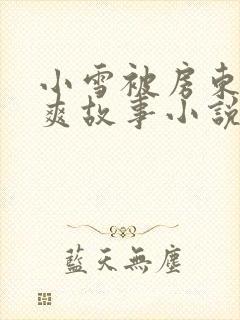 小雪被房东
爽故事小説
藍天無塵